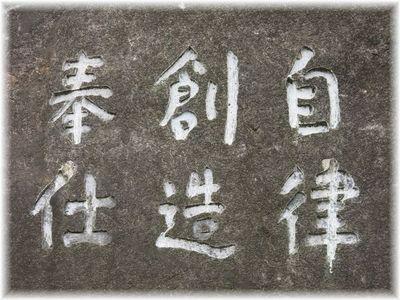 自律
創造
奉仕